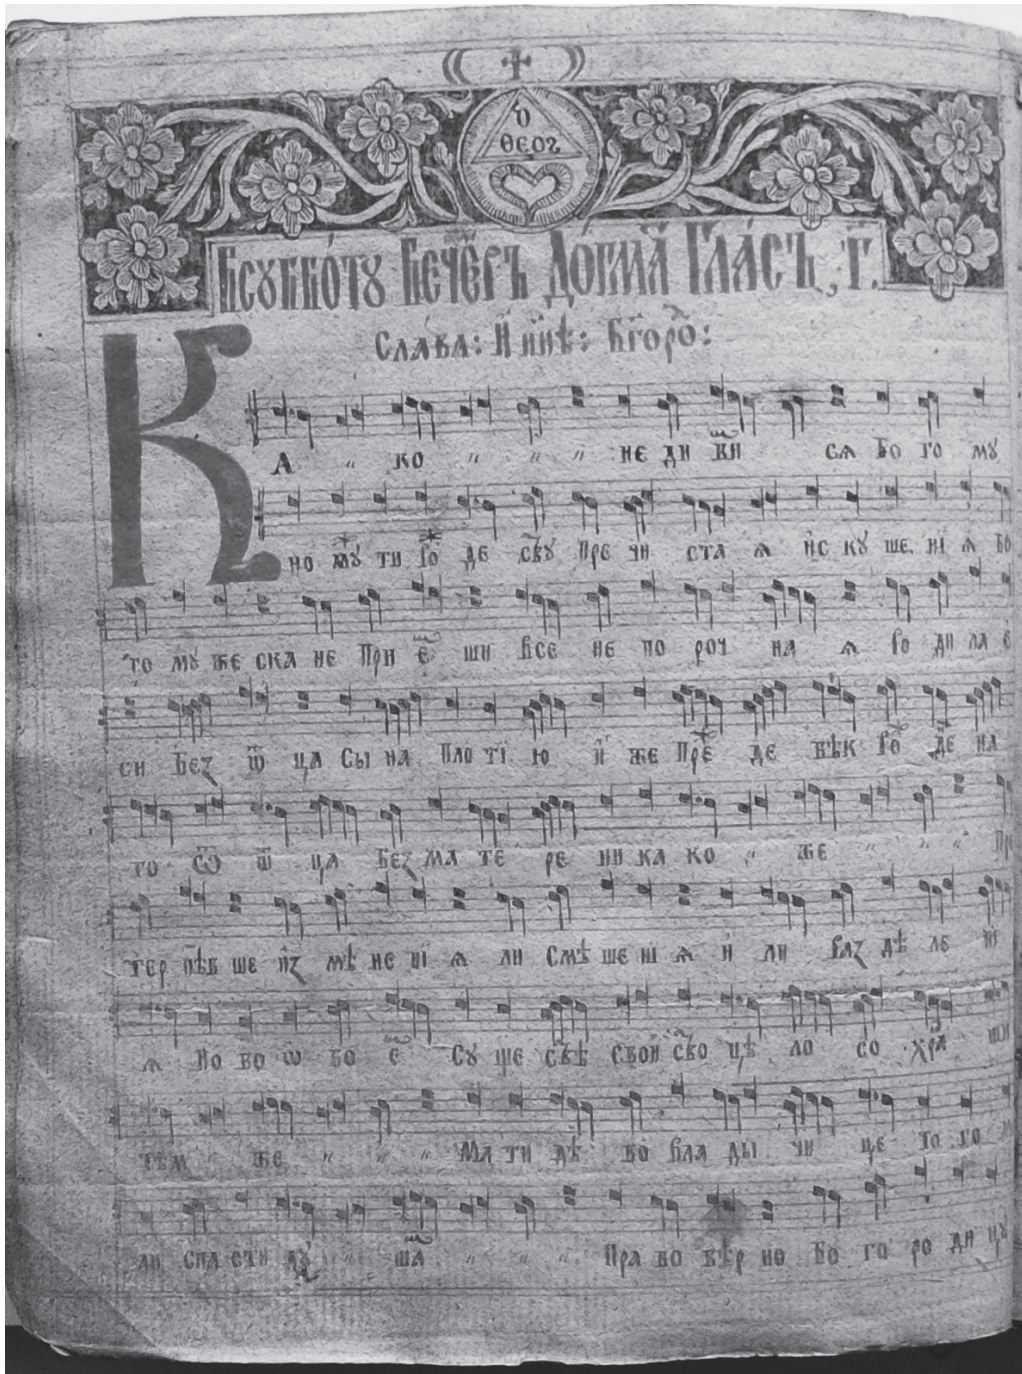 ὁ
θεος
Всуббо́ту Вече́ръ До́гма Гла́съ, г҃.
Сла́ва: И҆ нн҃ѣ: Бг҃оро:
К А „ ко „ „ „ не ди ви сѧ бо го му
но му ти ро де ству пре чи ста ѧ ис ку ше нїѧ бо
то му же ска не при е ши все не по роч на ѧ ро ди ла е
си без ѿ ца сы на пло тї ю и же пре де вѣк ро де на
го ѿ ца без ма те ре ни ка ко „ же „ „ „ пре
тер пѣв ше из мѣ не нї ѧ ли смѣ ше нї ѧ и ли раз дѣ ле нї
ѧ но во ѡ бо е су ще ст свой ство цѣ ло со хра
тѣм „ же „ „ „ Ма ти дѣ во вла ды чи це то го
ли спа сти дꙋ „ ша „ „ „ Пра во вѣр но бо го ро ди цу